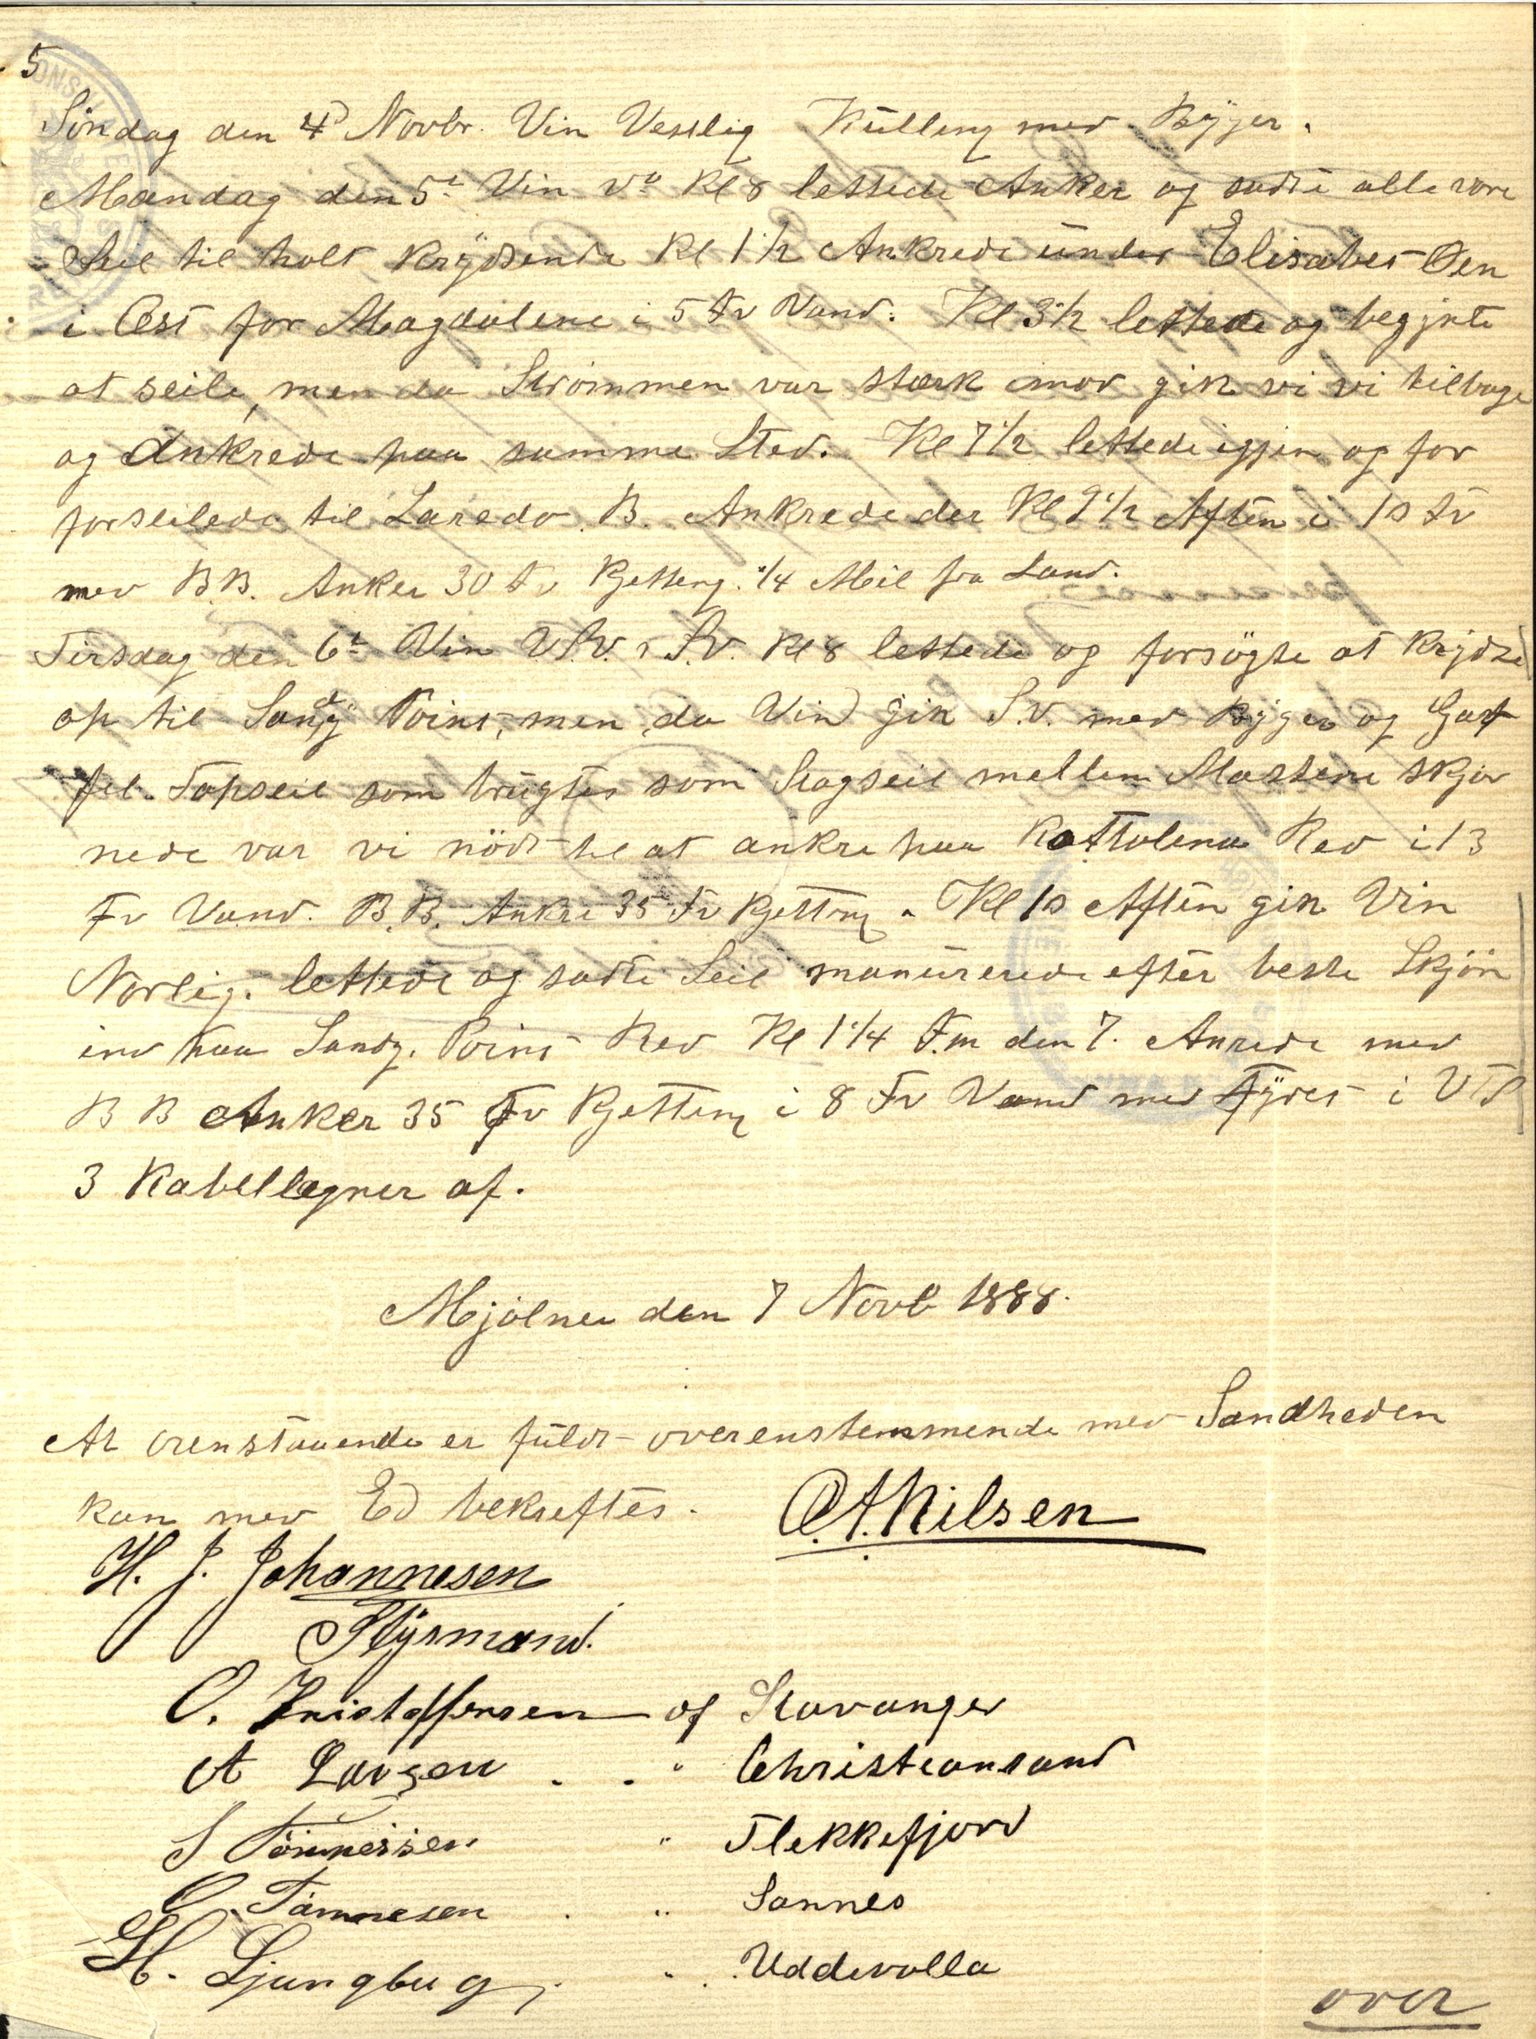 5
Söndag den 4d Novbr. Vin Vestlig Kulling med Byger.
Mandag den 5t Vin Vo Kl 8 lettede Anker og sadte alle vore
Seil til holt krydsende Kl 1 1/2 Ankrede under Elisabet Öen
i Öst for Magdalene i 5 Fv Vand. Kl 3 1/2 lettede og begynte
at seile, men da Strömmen var stærk imod gik vi vi tilbage
og Ankrede paa samme Sted. Kl 7 1/2 lettede igjen og for
forseilede til Laredo B. Ankrede der Kl 9 1/2 Aften i 10 Fv
med B.B. Anker 30 Fv Kjetteng. 1/4 Mil fra Land.
Tirsdag den 6t Vin V.S.V. S.V. Kl 8 lettede og forsögte at krydse
op til Sandy Point, men da Vind gik S.V. med Byger og Gaf
fel. Topseil som brugtes som Stagseil mellem Mastene skjör
nede var vi nödt til at ankre paa Katholena Red i 13
Fv Vand. B.B. Anker 35 Fv Kjetteng. Kl 10 Aften gik Vin
Nordlig. lettede og sadte Seil manürerede efter beste Skjön
ind paa Sandy. Point Red Kl 1 1/4 F.m den 7. Ankrede med
B B Anker 35 Fv Kjetteng i 8 Fv Vand med Fyret i V t S
3 Kabellægner af.
Mjölner den 7 Novb 1888.
At ovenstaaende er fuldt overenstemmende med Sandheden
kan med Ed bekreftes.
O. A. Nilsen
H. J. Johannesen
Stysmand.
O. Kristoffersen af Stavanger
A Larsen . . " Christiansand
S Tönnessen " Flekkefjord
O. Tönnesen . " Sannes
H. Ljungberg . . " Uddevalla
over